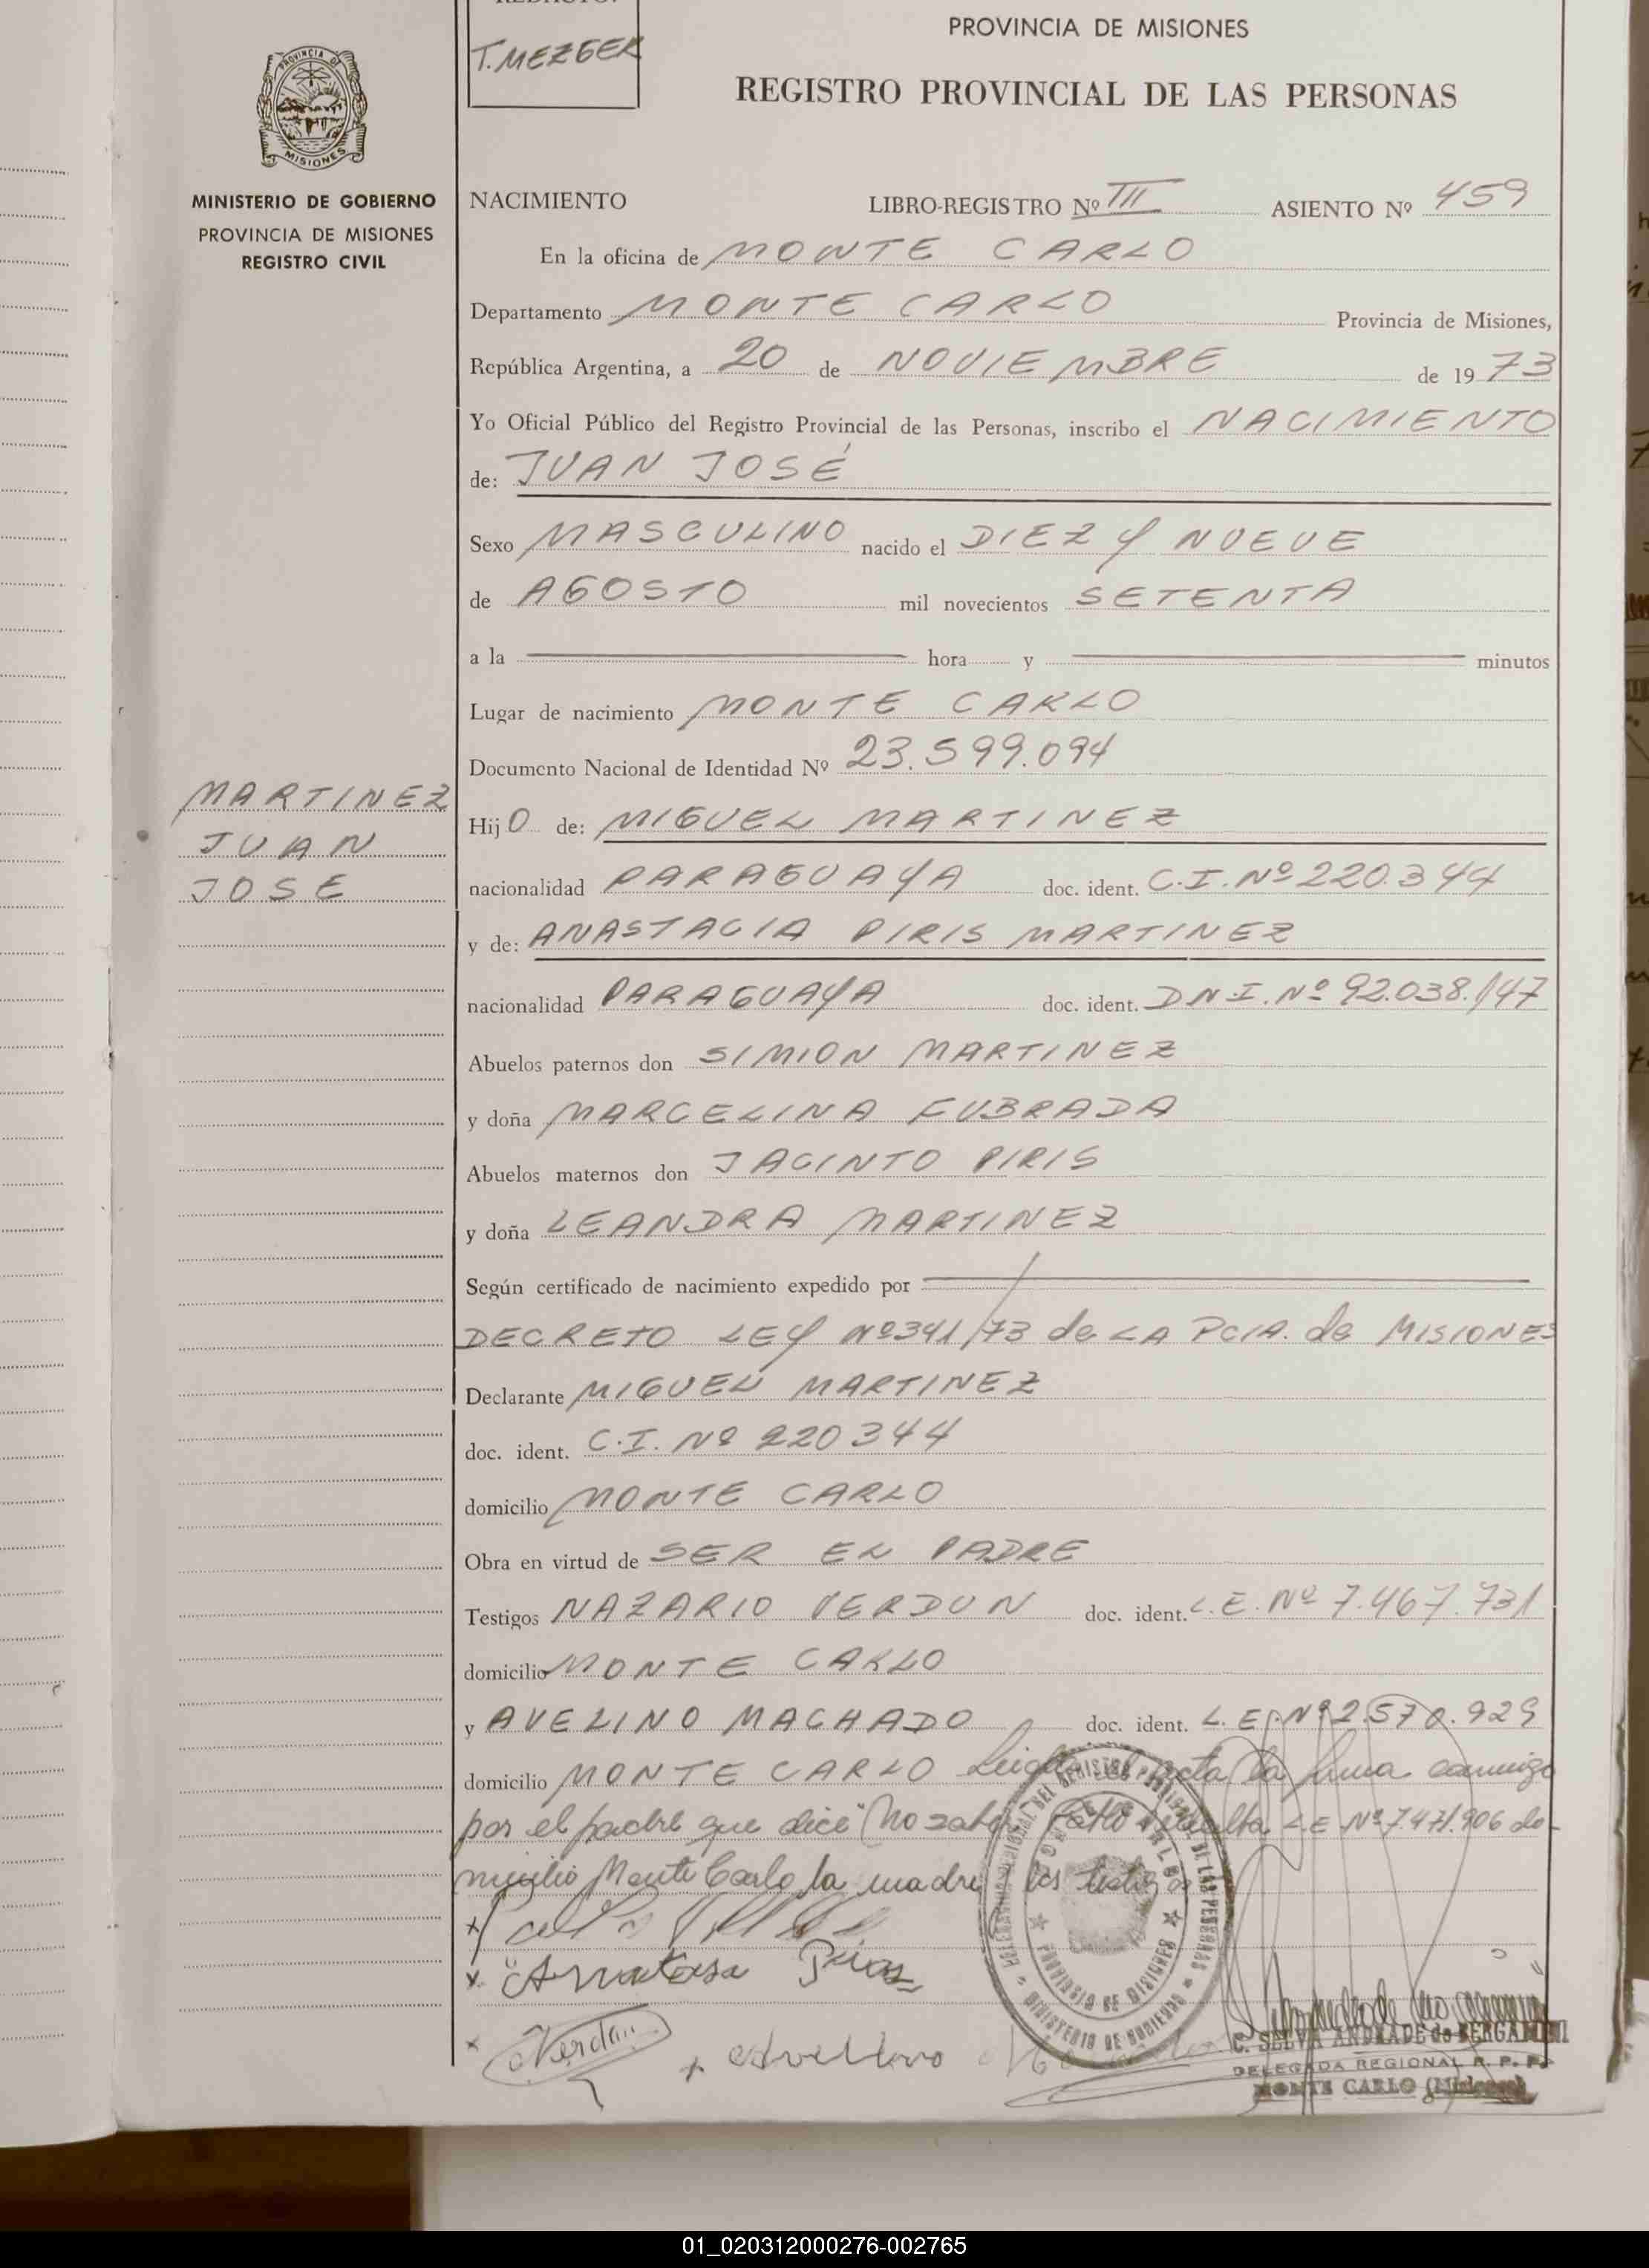 T. MEZGER
PROVINCIA DE MISIONES
REGISTRO PROVINCIAL DE LAS PERSONAS
PROVINCIA DE
MISIONES
MINISTERIO DE GOBIERNO
PROVINCIA DE MISIONES
REGISTRO CIVIL
NACIMIENTO LIBRO-REGISTRO Nº III ASIENTO Nº 459
En la oficina de MONTE CARLO
Departamento MONTE CARLO Provincia de Misiones,
República Argentina, a 20 de NOVIEMBRE de 19 73
Yo Oficial Público del Registro Provincial de las Personas, inscribo el NACIMIENTO
de: JUAN JOSÉ
Sexo MASCULINO nacido el DIEZ Y NUEVE
de AGOSTO mil novecientos SETENTA
a la hora y minutos
Lugar de nacimiento MONTE CARLO
Documento Nacional de Identidad Nº 23.599.094
MARTINEZ
JUAN
JOSE
Hij O de: MIGUEL MARTINEZ
nacionalidad PARAGUAYA doc. ident. C.I. Nº 220.344
y de: ANASTACIA PIRIS MARTINEZ
nacionalidad PARAGUAYA doc. ident. D N I. Nº 92.038.147
Abuelos paternos don SIMION MARTINEZ
y doña MARCELINA FUBRADA
Abuelos maternos don JACINTO PIRIS
y doña LEANDRA MARTINEZ
Según certificado de nacimiento expedido por
DECRETO LEY Nº341/73 de LA PCIA. de MISIONES
Declarante MIGUEL MARTINEZ
doc. ident. C.I. Nº 220344
domicilio MONTE CARLO
Obra en virtud de SER EL PADRE
Testigos NAZARIO VERDUN doc. ident. L.E. Nº 7.467.731
domicilio MONTE CARLO
y AVELINO MACHADO doc. ident. L. E. Nº 2.570.929
domicilio MONTE CARLO Leida el acta la firma conmigo
por el padre que dice no saber L.E Nº 7.471.906 do-
micilio Monte Carlo, la madre los testigos
Verdun
Avelino
PROVINCIA DE MISIONES
MINISTERIO DE GOBIERNO
C. SELVA ANDRADE de BERGAMINI
DELEGADA REGIONAL R. P. P.
MONTE CARLO (Misiones)
01_020312000276-002765